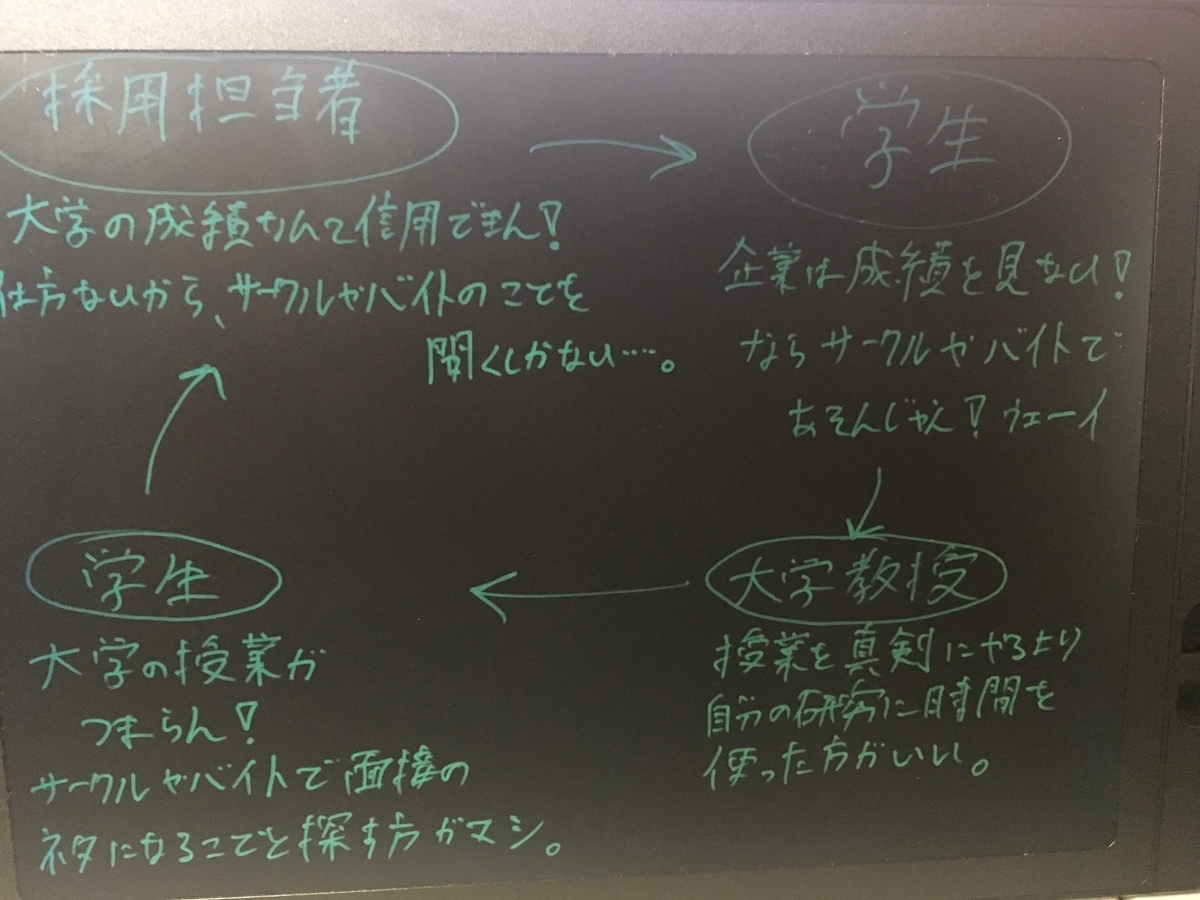 採用担当者
大学の成績なんて信用できん!
仕方ないから、サークルやバイトのことを
聞くしかない……。
学生
企業は成績を見ない!
ならサークルやバイトで
あそんじゃえ!ウェーイ
大学教授
授業を真剣にやるより
自分の研究に時間を
使った方がいい。
学生
大学の授業が
つまらん!
サークルやバイトで面接の
ネタになることを探す方がマシ。